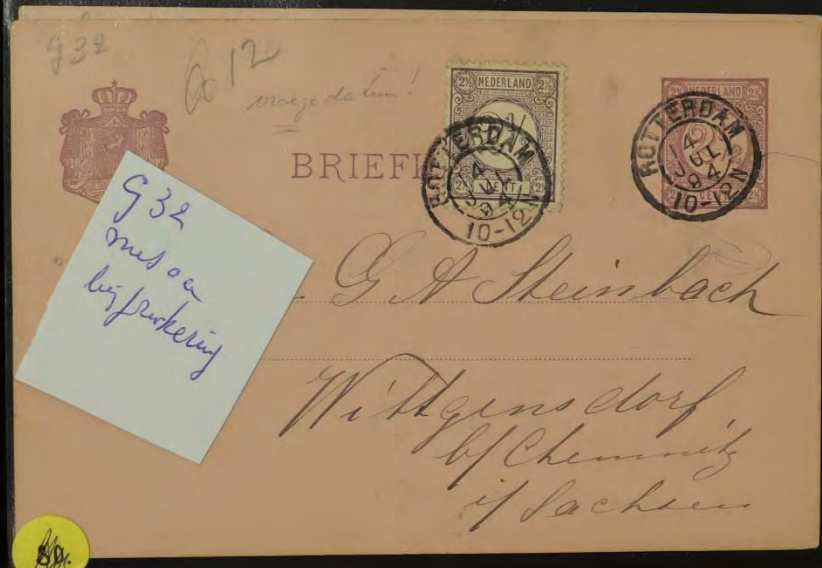 g 32
12
vroege datum!
2½ NEDERLAND 2½
2½ CENT 2½
ROTTERDAM
4
JUL
84
10-12N
2½ NEDERLAND 2½
2½
ROTTERDAM
4
JUL
84
10-12N
BRIEFK
G 32
met
bijfrankering
G A Steinbach
Wittgensdorf
b/ Chemnitz
i/ Sachsen